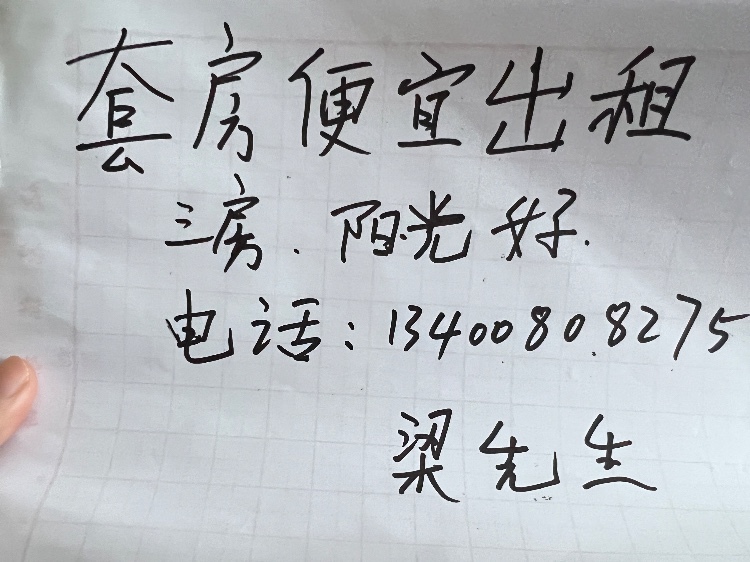 套房便宜出租
三房.阳光好.
电话:13400808275
梁先生